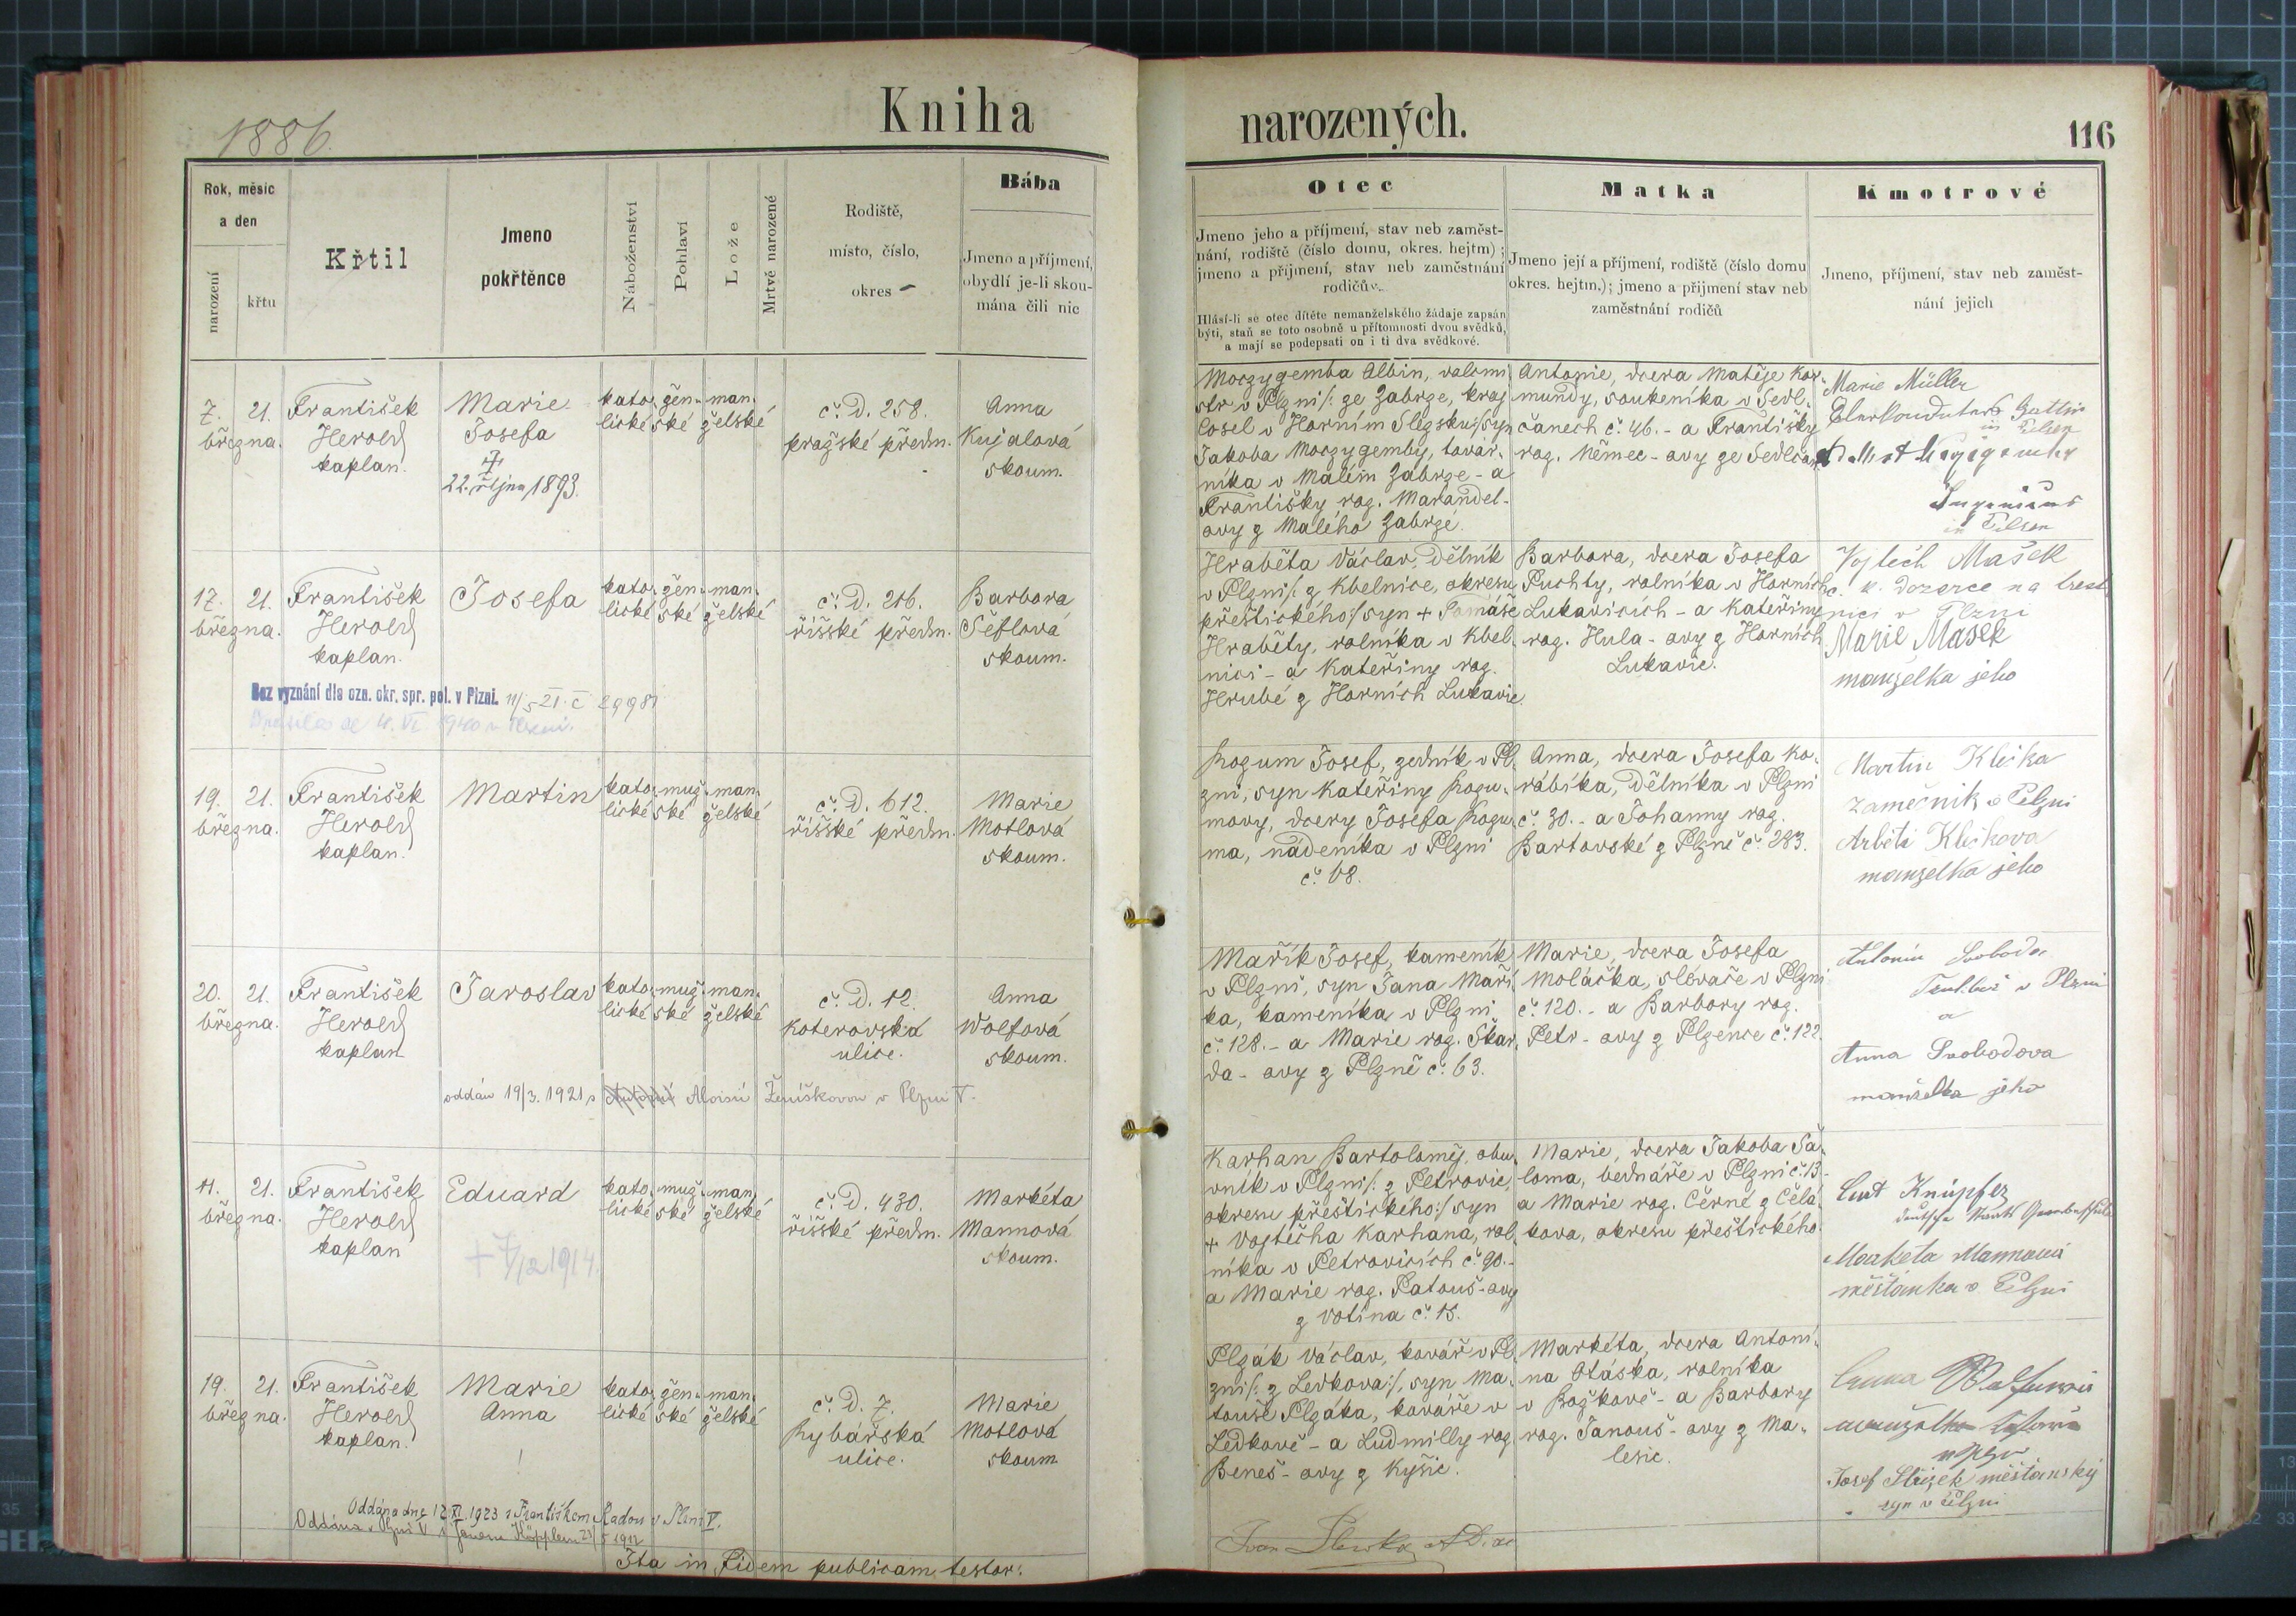 1886.
Kniha
narozených.
116
Rok, měsíc
a den
narození
křtu
Křtil
Jmeno
pokřtěnce
Náboženství
Pohlaví
Lože
Mrtvě narozené
Rodiště,
místo, číslo,
okres
Bába
Jmeno a příjmení,
obydlí je-li skou-
mána čili nic
Otec
Jmeno jeho a příjmení, stav neb zaměst-
nání, rodiště (číslo domu, okres. hejtm);
jmeno a příjmení, stav neb zaměstnání
rodičův.
Hlásí-li se otec dítěte nemanželského žádaje zapsán
býti, staň se toto osobně u přítomnosti dvou svědků,
a mají se podepsati on i ti dva svědkové.
Matka
Jmeno její a příjmení, rodiště (číslo domu
okres. hejtm.); jmeno a přijmení stav neb
zaměstnání rodičů
Kmotrové
Jmeno, příjmení, stav neb zaměst-
nání jejich
7. 21.
března.
František
Herold
kaplan.
Marie
Josefa
22. října 1893.
kato- žen- man-
lické ské želské
č. D. 258.
pražské předm.
Anna
Kujalová
skoum.
Moczygemba Albin, valcmi-
str v Plzni /: ze Zabrze, kraj
Cosel v Horním Slezsku :/ syn
Jakoba Moczygemby, tovar-
níka v Malém Zabrze - a
Františky roz. Marandel-
ovy z Malého Zabrzé.
Antonie, dcera Matěje Kor-
mundy, soukeníka v Sedl-
čanech č. 46. - a Františky
roz. Němec - ovy ze Sedlčan
Marie Müller
Gattin
in Pilsen
Ingenieur
in Pilsen
17. 21.
března.
František
Herold
kaplan.
Josefa
kato- žen- man-
lické ské želské
č. D. 216.
říšské předm.
Barbora
Šeflová
skoum.
Bez vyznání dle ozn. okr. spr. pol. v Plzni. 11/5 21. č 29981
Hraběta Václav, dělník
v Plzni /: z Kbelnice, okresu
přeštického :/ syn + Tomáše
Hraběty, rolníka v Kbel-
nici - a Kateřiny roz.
Hrubé z Horních Lukavic.
Barbora, dcera Josefa
Puchty, rolníka v Horních
Lukavicích - a Kateřiny
roz. Hula - ovy z Horních
Lukavic.
Vojtěch Mašek
c. k. dozorce na trest
nici v Plzni
Marie Mašek
manželka jeho
19. 21.
března.
František
Herold
kaplan.
Martin
kato- muž- man-
lické ské želské
č. D. 612.
říšské předm.
Marie
Motlová
skoum.
Rozum Josef, zedník v Pl-
zni, syn Kateřiny Rozu-
movy, dcery Josefa Rozu-
ma, nádeníka v Plzni
č. 68.
Anna, dcera Josefa Ko-
rábíka, dělníka v Plzni
č. 30. - a Johanny roz.
Bartovské z Plzně č. 283.
Martin Klička
zámečník v Plzni
Kličkova
manželka jeho
20. 21.
března.
František
Herold
kaplan
Jaroslav
kato- muž- man-
lické ské želské
č. D. 12.
Koterovská
ulice.
Anna
Wolfová
skoum.
oddán 19/3. 1921 s Aloisií Ženíškovou v Plzni V.
Mařík Josef, kameník
v Plzni, syn Jana Maří-
ka, kameníka v Plzni
č. 128. - a Marie roz. Škar-
da - ovy z Plzně č. 63.
Marie, dcera Josefa
Moláčka, slévače v Plzni
č. 120. - a Barbory roz.
Petr - ovy z Plzence č. 122.
Antonín Svoboda
v Plzni
a
Anna Svobodova
manželka jeho
11. 21.
března.
František
Herold
kaplan
Eduard
+ 7/12 1914.
kato- muž- man-
lické ské želské
č. D. 430.
říšské předm.
Markéta
Mannová
skoum.
Karhan Bartoloměj, obu-
vník v Plzni /: z Petrovic,
okresu přeštického :/ syn
+ Vojtěcha Karhana, rol-
níka v Petrovicích č. 90. -
a Marie roz. Patouš - ovy
z Votína č. 15.
Marie, dcera Jakoba Ša-
loma, bednáře v Plzni č. 13 -
a Marie roz. Černé z Čelá-
kova, okresu přeštického.
Knüpfer
Markéta Mannová
měšťanka v Plzni
19. 21.
března.
František
Herold
kaplan.
Marie
Anna
kato- žen- man-
lické ské želské
č. D. 7.
Rybářská
ulice.
Marie
Motlová
skoum.
Oddána dne 12. XI. 1923 s Františkem Radou v Plzni V.
Oddána v Plzni V s Janem 23/5 1912
Plzák Václav, kovář v Pl-
zni /: z Ledkova :/, syn Ma-
touše Plzáka, kováře v
Ledkově - a Ludmilly roz.
Beneš - ovy z Kyšic.
Markéta, dcera Antoní-
na Otáska, rolníka
v Božkově - a Barbory
roz. Janouš - ovy z Ma-
lesic.
Josef měšťanský
syn v Plzni
Ita in fidem publicam testor: